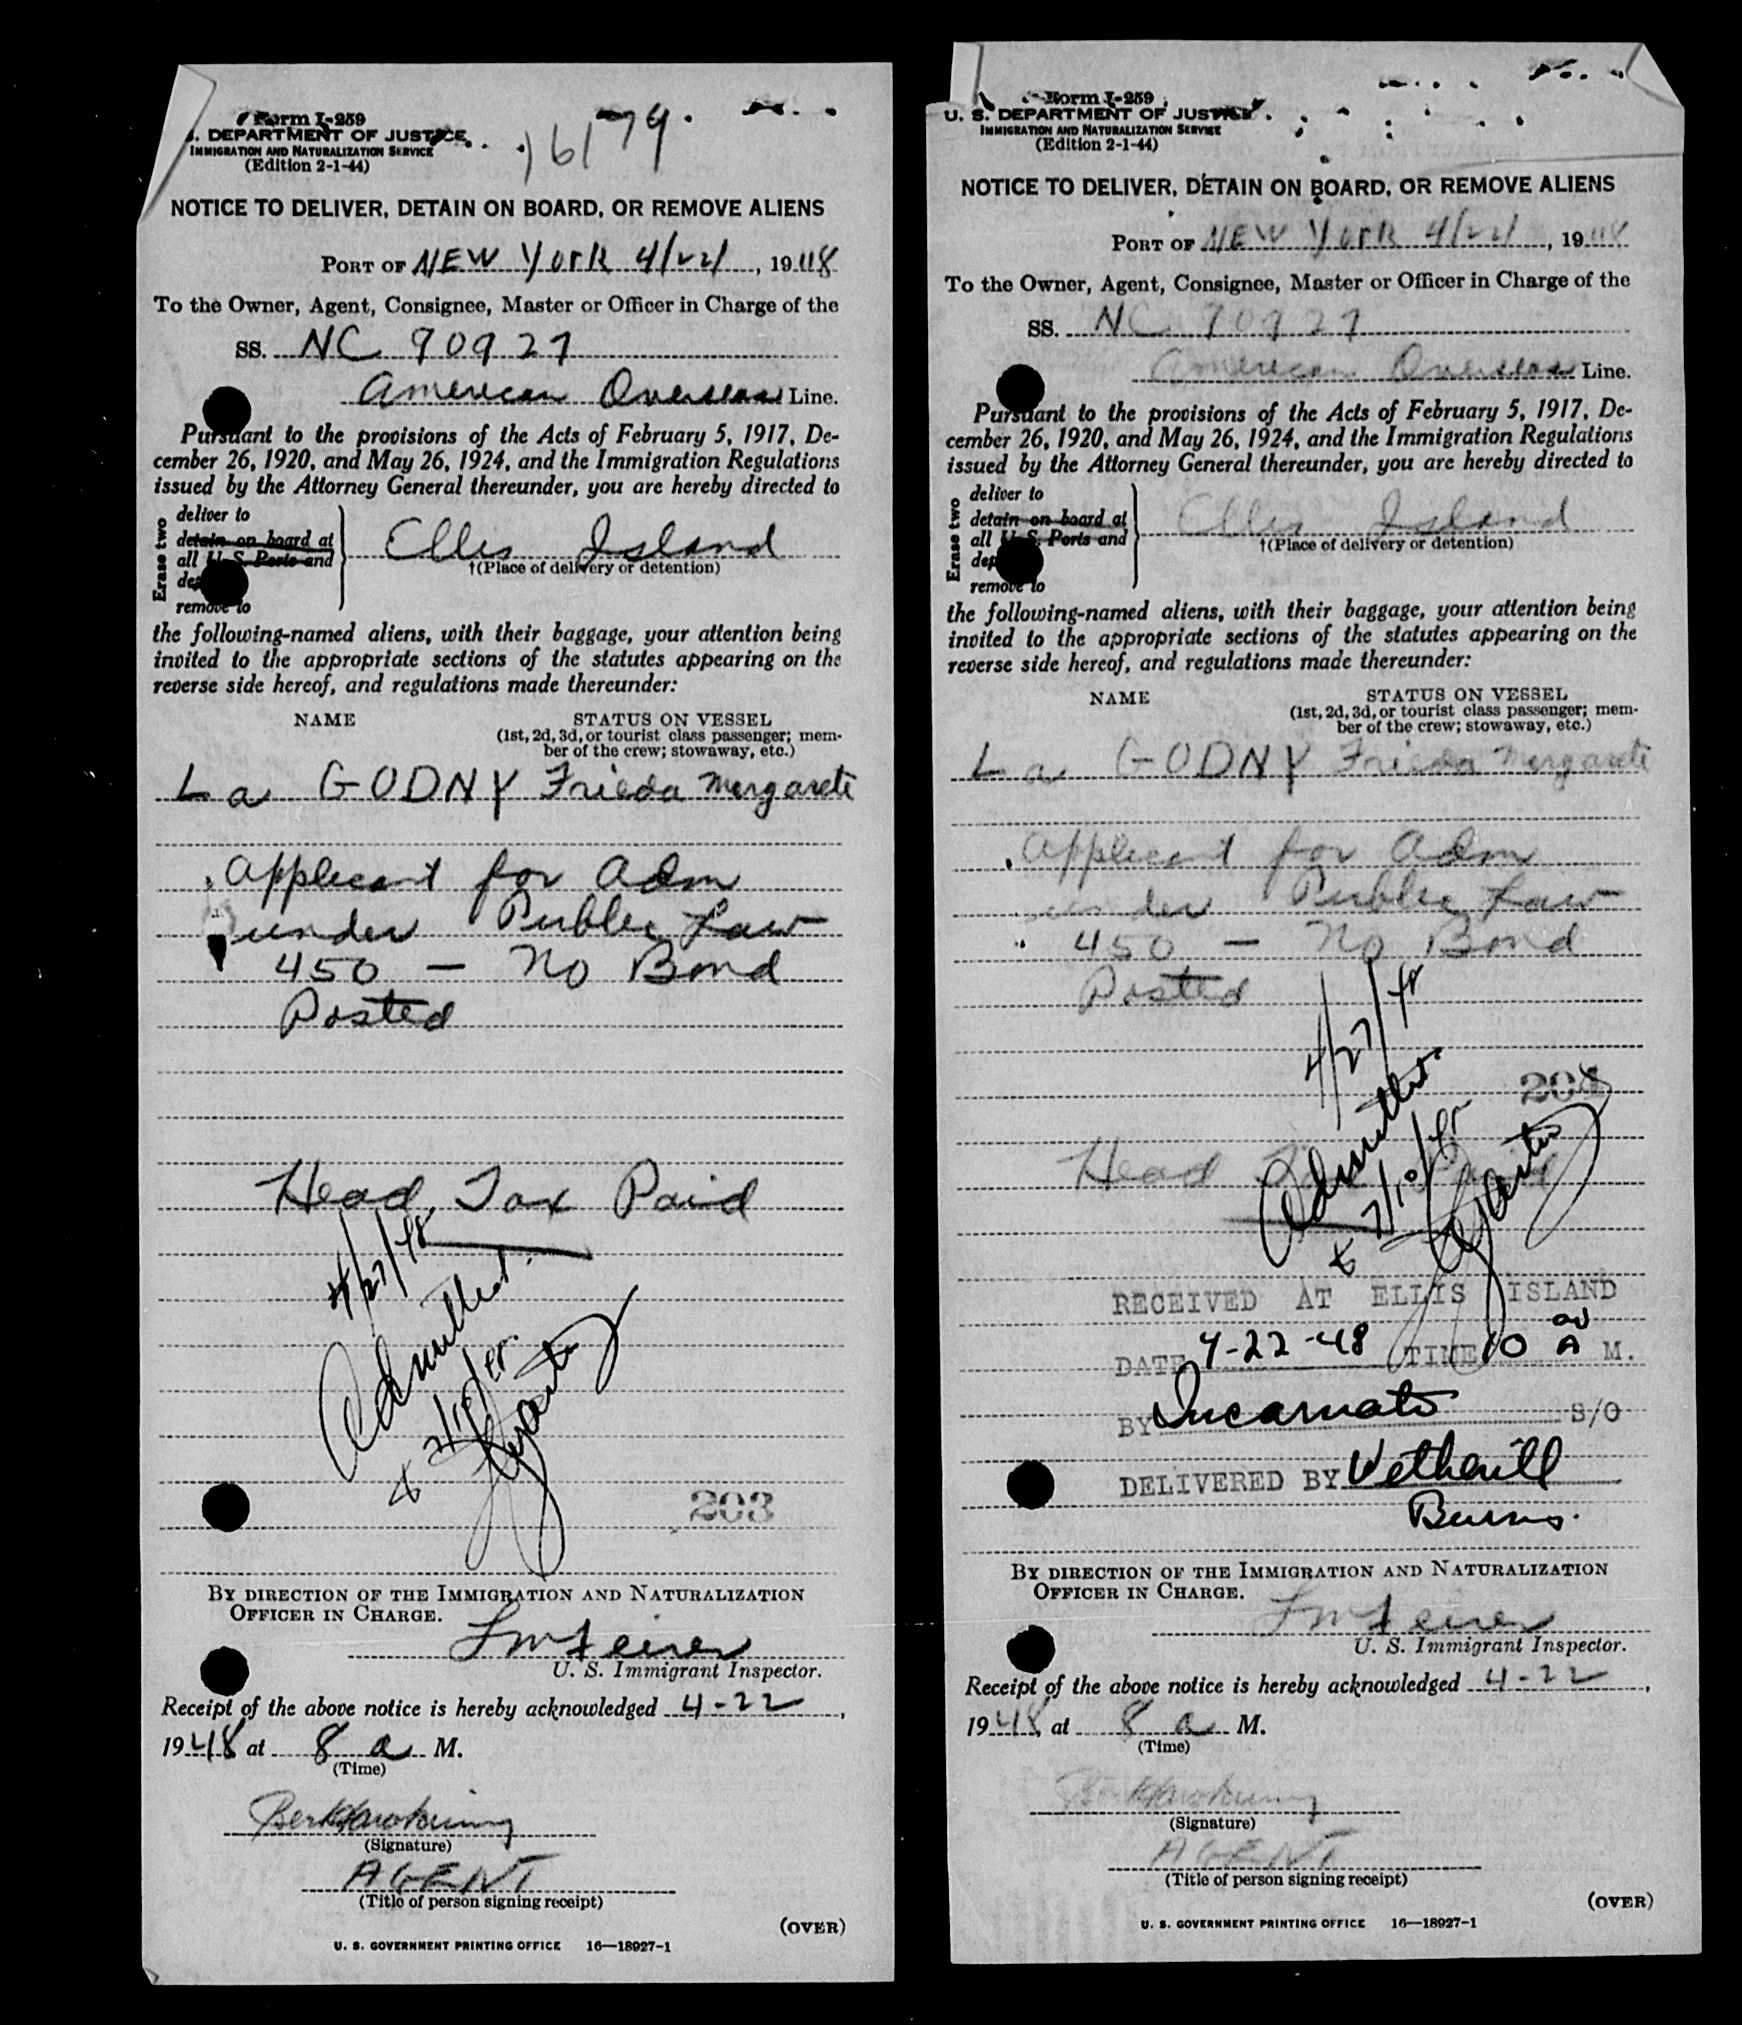 Form I-259
. DEPARTMENT OF JUSTICE
IMMIGRATION AND NATURALIZATION SERVICE
(Edition 2-1-44)
16179
NOTICE TO DELIVER, DETAIN ON BOARD, OR REMOVE ALIENS
PORT OF NEW York 4/22, 1948
To the Owner, Agent, Consignee, Master or Officer in Charge of the
SS. NC 90927
American Overseas Line.
Pursuant to the provisions of the Acts of February 5, 1917, De-
cember 26, 1920, and May 26, 1924, and the Immigration Regulations
issued by the Attorney General thereunder, you are hereby directed to
Erase two
deliver to
detain on board at
all U. S. Ports and
remove to
Ellis Island
†(Place of delivery or detention)
the following-named aliens, with their baggage, your attention being
invited to the appropriate sections of the statutes appearing on the
reverse side hereof, and regulations made thereunder:
NAME
STATUS ON VESSEL
(1st, 2d, 3d, or tourist class passenger; mem-
ber of the crew; stowaway, etc.)
La GODNY Frieda Margarete
Applicant for Adm
under Public Law
450 — No Bond
Posted
Head Tax Paid
4/27/48
Admitted
203
BY DIRECTION OF THE IMMIGRATION AND NATURALIZATION
OFFICER IN CHARGE.
U. S. Immigrant Inspector.
Receipt of the above notice is hereby acknowledged 4-22,
1948 at 8 a M.
(Time)
(Signature)
AGENT
(Title of person signing receipt)
(OVER)
U. S. GOVERNMENT PRINTING OFFICE 16—18927-1
Form I-259
U. S. DEPARTMENT OF JUSTICE
IMMIGRATION AND NATURALIZATION SERVICE
(Edition 2-1-44)
NOTICE TO DELIVER, DETAIN ON BOARD, OR REMOVE ALIENS
PORT OF NEW York 4/22, 1948
To the Owner, Agent, Consignee, Master or Officer in Charge of the
SS. NC 90927
American Overseas Line.
Pursuant to the provisions of the Acts of February 5, 1917, De-
cember 26, 1920, and May 26, 1924, and the Immigration Regulations
issued by the Attorney General thereunder, you are hereby directed to
Erase two
deliver to
detain on board at
all U. S. Ports and
remove to
Ellis Island
†(Place of delivery or detention)
the following-named aliens, with their baggage, your attention being
invited to the appropriate sections of the statutes appearing on the
reverse side hereof, and regulations made thereunder:
NAME
STATUS ON VESSEL
(1st, 2d, 3d, or tourist class passenger; mem-
ber of the crew; stowaway, etc.)
La GODNY Frieda Margarete
Applicant for Adm
under Public Law
450 — No Bond
Posted
4/27/48
Admitted
Head
RECEIVED AT ELLIS ISLAND
DATE 4-22-48 TIME 10 A M.
BY Incarnato S/O
DELIVERED BY Wetherill
Burns.
BY DIRECTION OF THE IMMIGRATION AND NATURALIZATION
OFFICER IN CHARGE.
U. S. Immigrant Inspector.
Receipt of the above notice is hereby acknowledged 4-22,
1948, at 8 a M.
(Time)
(Signature)
AGENT
(Title of person signing receipt)
(OVER)
U. S. GOVERNMENT PRINTING OFFICE 16—18927-1